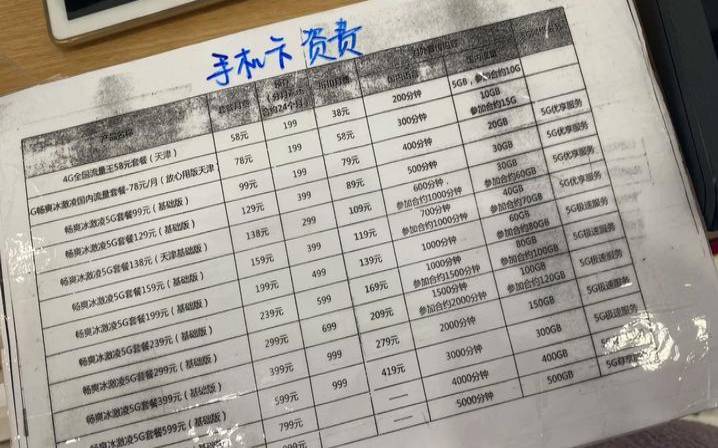 手机卡资费
产品名称 套餐月费 合约24个月） 折扣月费 国内流量
4G全国流量王58元套餐（天津） 58元 199 38元 200分钟 5GB，参加合约10G
G畅爽冰激凌国内流量套餐-78元/月（放心用版天津 78元 199 58元 300分钟 10GB 参加合约15G
畅爽冰激凌5G套餐99元（基础版） 99元 199 79元 400分钟 20GB 5G优享服务
畅爽冰激凌5G套餐129元（基础版） 129元 399 89元 500分钟 30GB 5G优享服务
畅爽冰激凌5G套餐138元（天津基础版） 138元 299 109元 600分钟，参加合约1000分钟 30GB 参加合约60GB 5G优享服务
畅爽冰激凌5G套餐159元（基础版） 159元 399 119元 700分钟 参加合约1000分钟 40GB 参加合约70GB 5G优享服务
畅爽冰激凌5G套餐199元（基础版） 199元 499 139元 1000分钟 60GB 参加合约80GB 5G极速服务
畅爽冰激凌5G套餐239元（基础版） 239元 599 169元 1000分钟 参加合约1500分钟 80GB 参加合约100GB 5G极速服务
畅爽冰激凌5G套餐299元（基础版） 299元 699 209元 1500分钟 参加合约2000分钟 100GB 参加合约120GB 5G极速服务
畅爽冰激凌5G套餐399元（基础版） 399元 999 279元 2000分钟 150GB 5G极速服务
畅爽冰激凌5G套餐599元（基础版） 599元 999 419元 3000分钟 300GB 5G极速服务
799元 — — 4000分钟 400GB 5G尊享服务
— 5000分钟 500GB